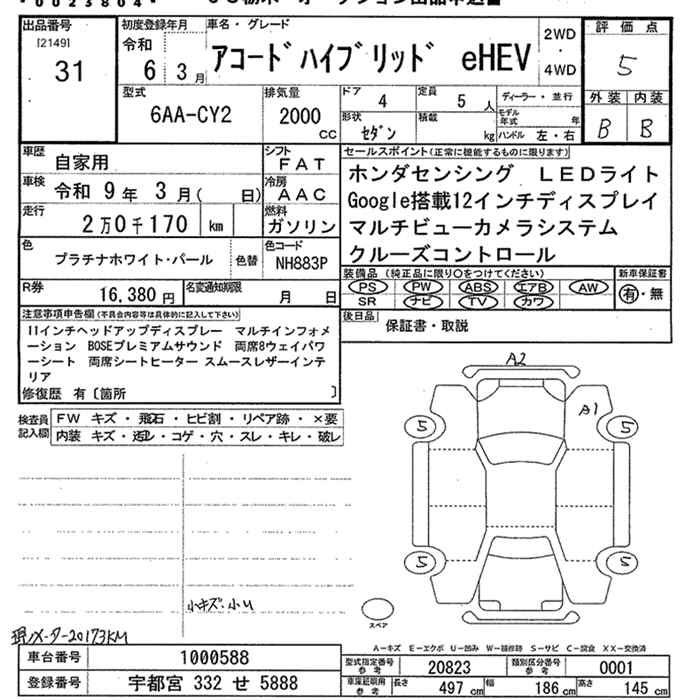 *0023804*
出品番号 [2149] 31
初度登録年月 令和 6年 3月
車名・グレード アコードハイブリッド eHEV
2WD・4WD
評価点 5
外装 B 内装 B
型式 6AA-CY2
排気量 2000 cc
ドア 4 定員 5 人
形状 セダン 積載 kg
ディーラー・並行
モデル年式 年
ハンドル 左・右
車歴 自家用
シフト FAT
車検 令和 9年 3月( 日)
冷房 AAC
走行 2万0千170 km
燃料 ガソリン
色 プラチナホワイト・パール 色替
色コード NH883P
R券 16,380円
名変通知期限 月 日
セールスポイント(正常に機能するものに限ります)
ホンダセンシング LEDライト
Google搭載12インチディスプレイ
マルチビューカメラシステム
クルーズコントロール
装備品(純正品に限り○をつけてください)
PS PW ABS エアB AW
SR ナビ TV カワ
新車保証書 有・無
後日品 保証書・取説
注意事項申告欄(不具合内容等は具体的に記入して下さい)
11インチヘッドアップディスプレー マルチインフォメ
ーション BOSEプレミアムサウンド 両席8ウェイパワ
ーシート 両席シートヒーター スムースレザーインテ
リア
修復歴 有〔箇所 〕
検査員記入欄
FW キズ・飛石・ヒビ割・リペア跡・×要
内装 キズ・汚レ・コゲ・穴・スレ・キレ・破レ
A2
A1
5 5
5 5
小キズ・小U
スペア
現メーター20173KM
A-キズ E-エクボ U-凹み W-補修跡 S-サビ C-腐食 XX-交換済
車台番号 1000588
登録番号 宇都宮 332 せ 5888
型式指定番号 参考 20823
類別区分番号 参考 0001
車庫証明用 参考 長さ 497 cm 幅 186 cm 高さ 145 cm